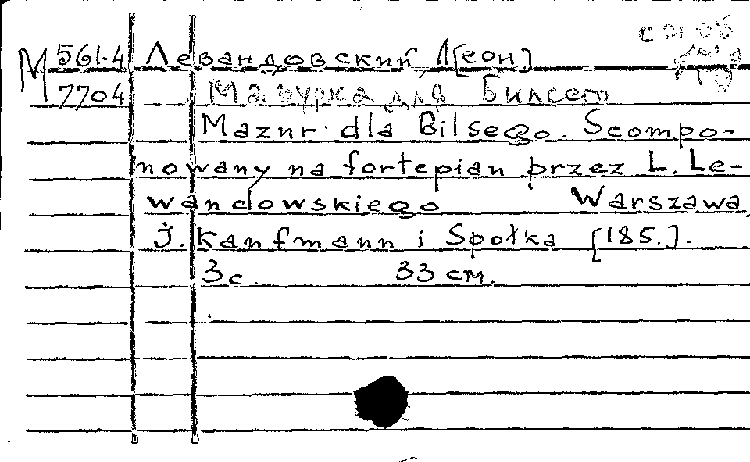 М 561-4 Левандовский, Л[еон]
7704 Мазурка для Бильсего
Mazur dla Bilsego. Scompo-
nowany na fortepian przez L. Le-
wandowskiego Warszawa
J. Kaufmann i Społka [185.].
3 с. 33 см.